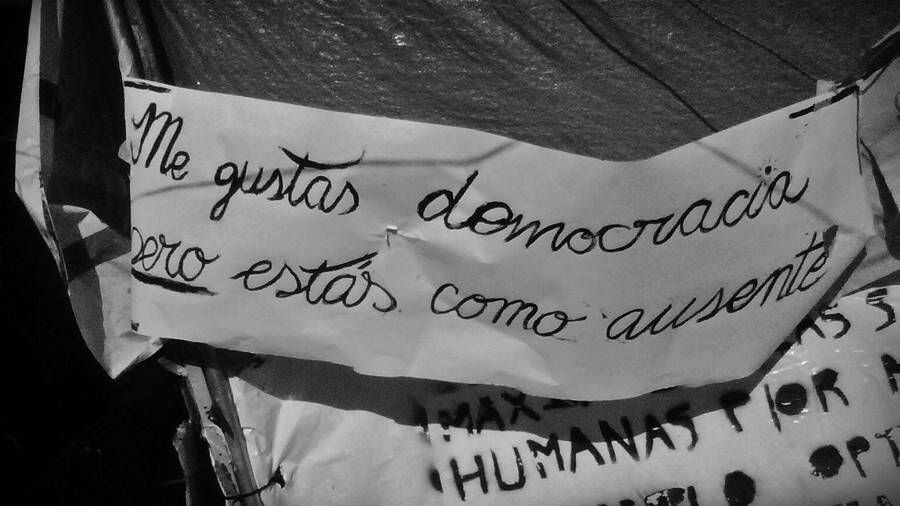 Me gustas democracia
pero estás como ausente
AS S
MAX
HUMANAS POR
OPT